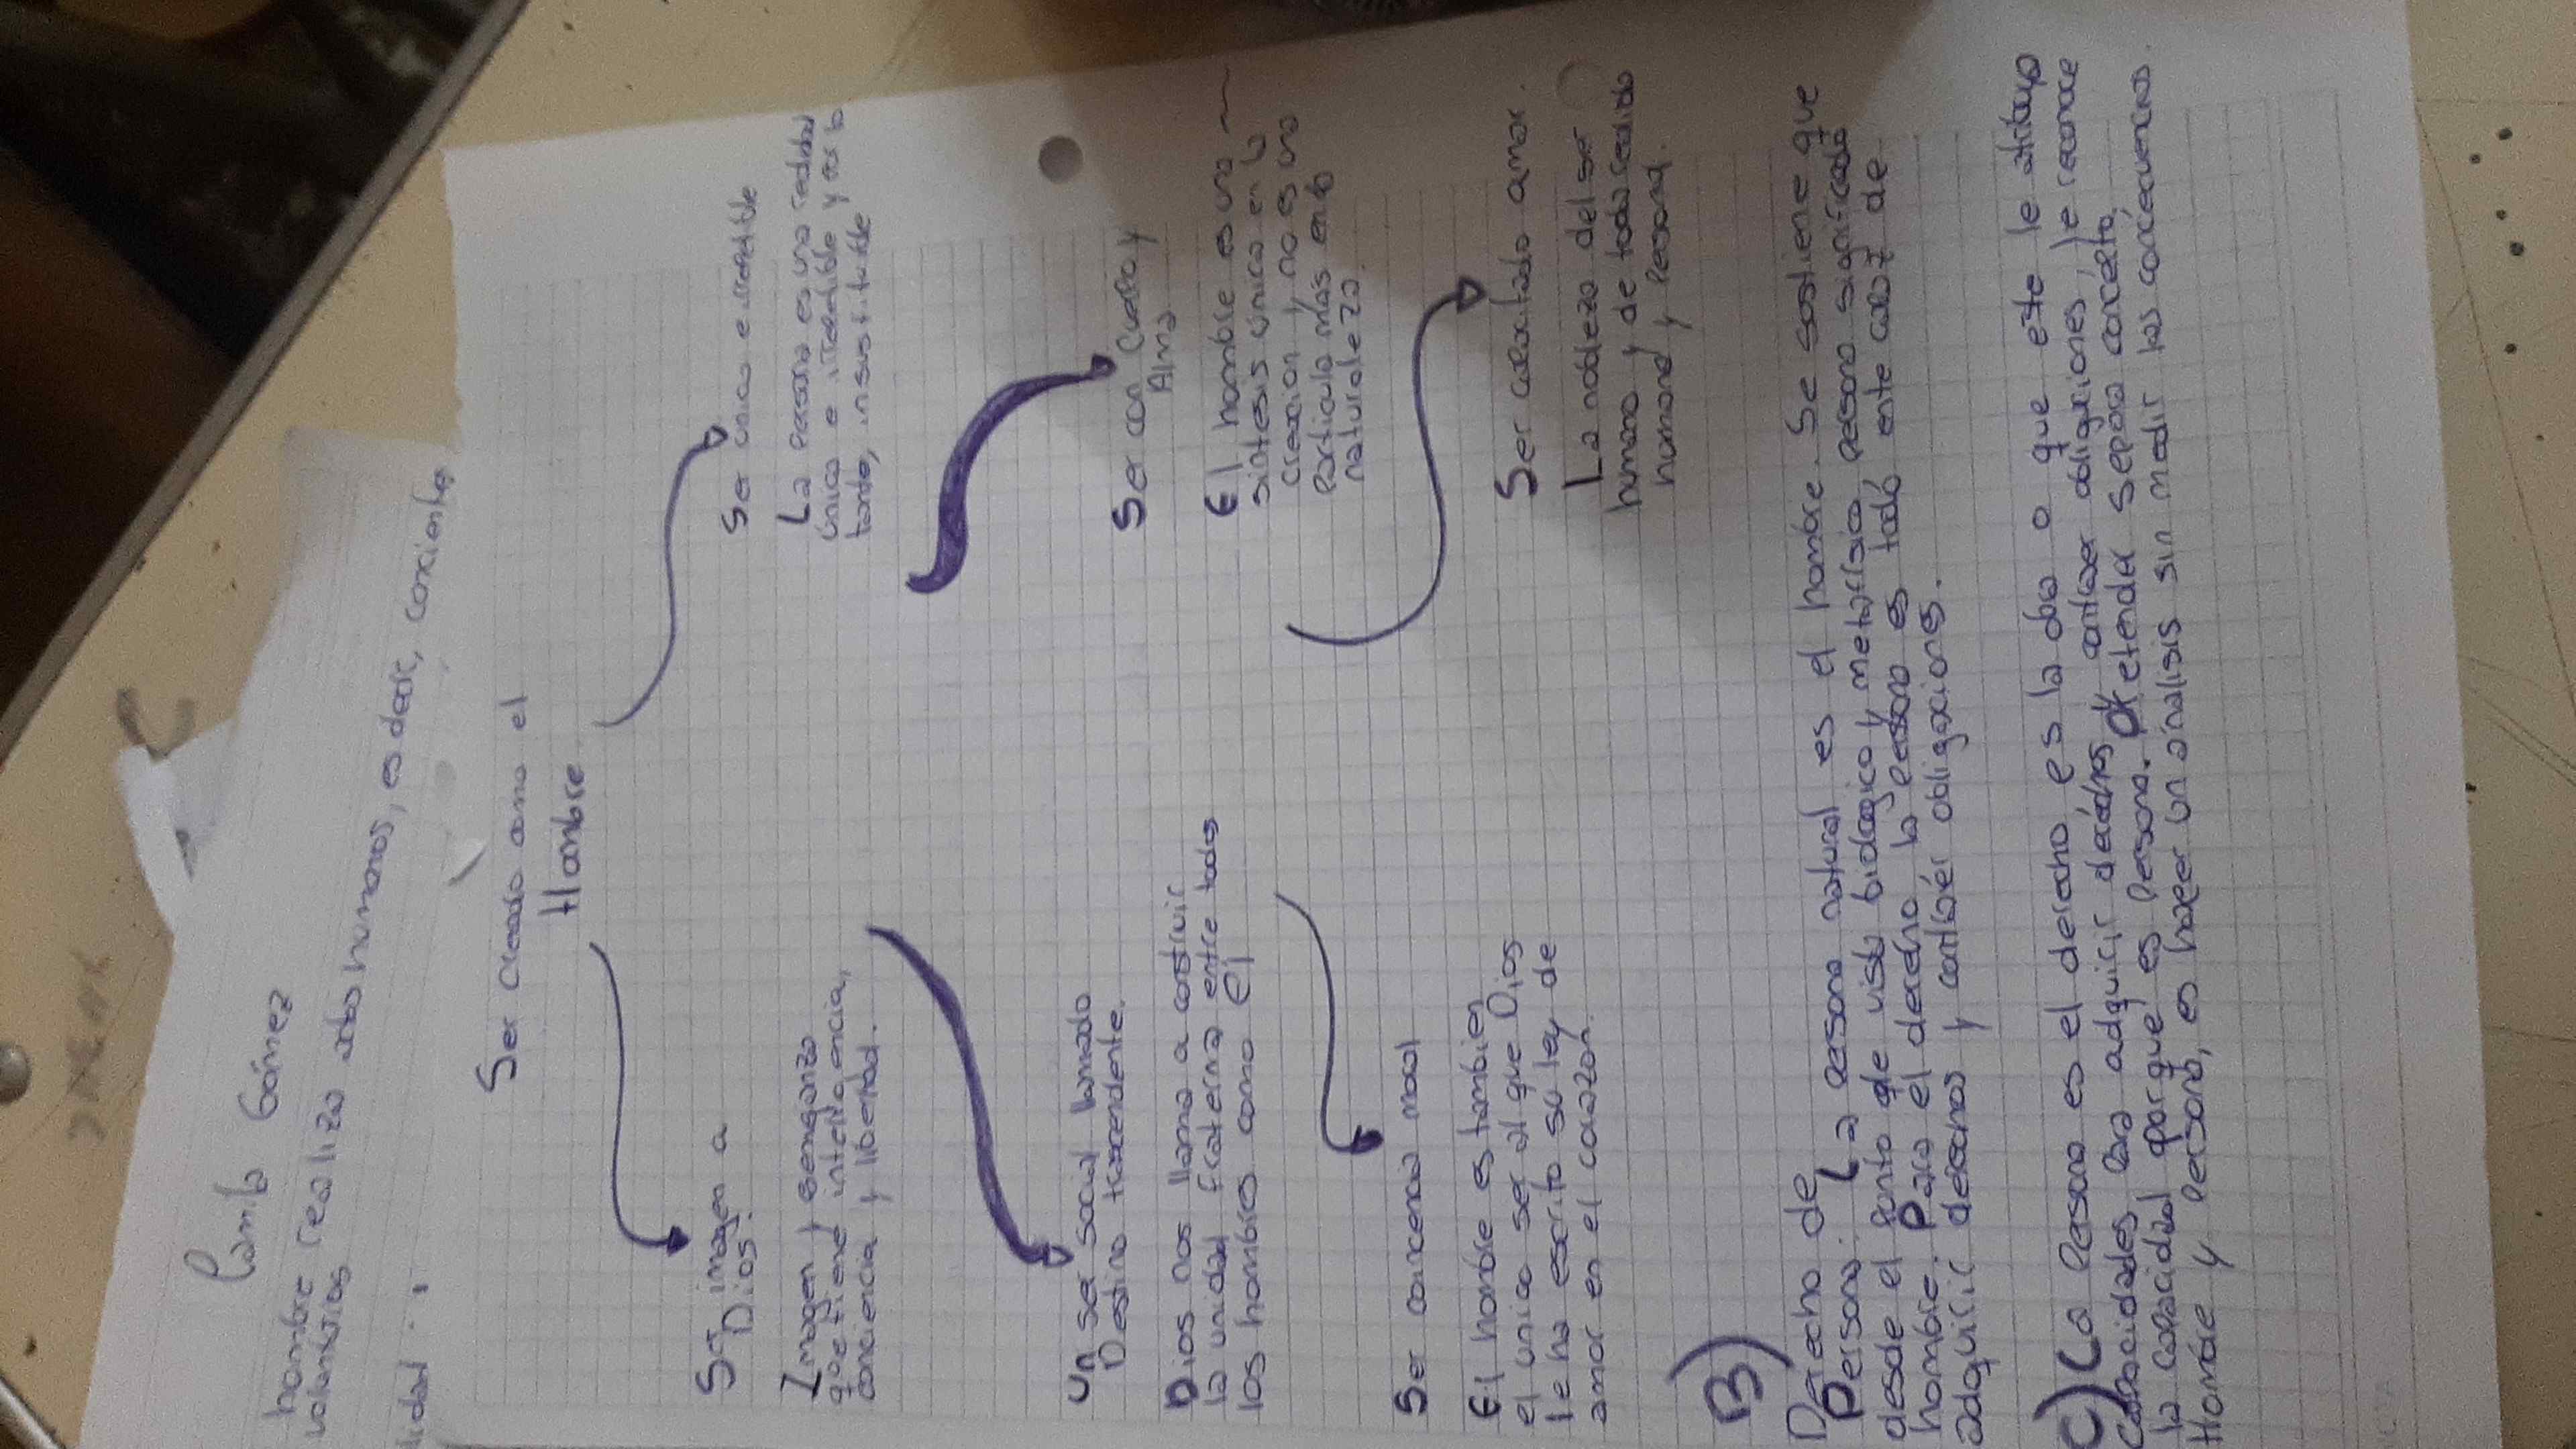 Camila Gómez
hombre realiza actos humanos, es decir, conciente
voluntarios
lidad
Ser creado como el
Hombre
Ser imagen a
Dios.
Imagen y semejanza
que tiene inteligencia,
conciencia y libertad.
Ser unico e irrepetible
La persona es una realidad
única e irrepetible y por lo
tanto, insustituible
Un ser social llamado
Destino trascendente.
Dios nos llama a costruir
la unidad fraterna entre todos
los hombres como él
Ser con cuerpo y
Alma
El hombre es una
sintesis única en la
creacion y no es una
particula más en la
naturaleza.
Ser conciencia moral
El hombre es tambien
el unico ser al que Dios
le ha escrito su ley de
amor en el corazón.
Ser capacitado amar.
La nobleza del ser
humano y de toda realidad
humana y personal.
B)
Derecho de
Persona: La persona natural es el hombre. Se sostiene que
desde el punto de vista biologico y metafisico, persona significada
hombre. Para el derecho la persona es todo ente capaz de
adquirir derechos y contraér obligaciones.
C) La persona es el derecho es la da o que este le atribuye
capacidades para adquirir derechos contraer obligaciones, le reconoce
la capacidad porque es persona. Pretender separa concepto
Hombre y persona, es hacer un análisis sin medir las concecuencias.